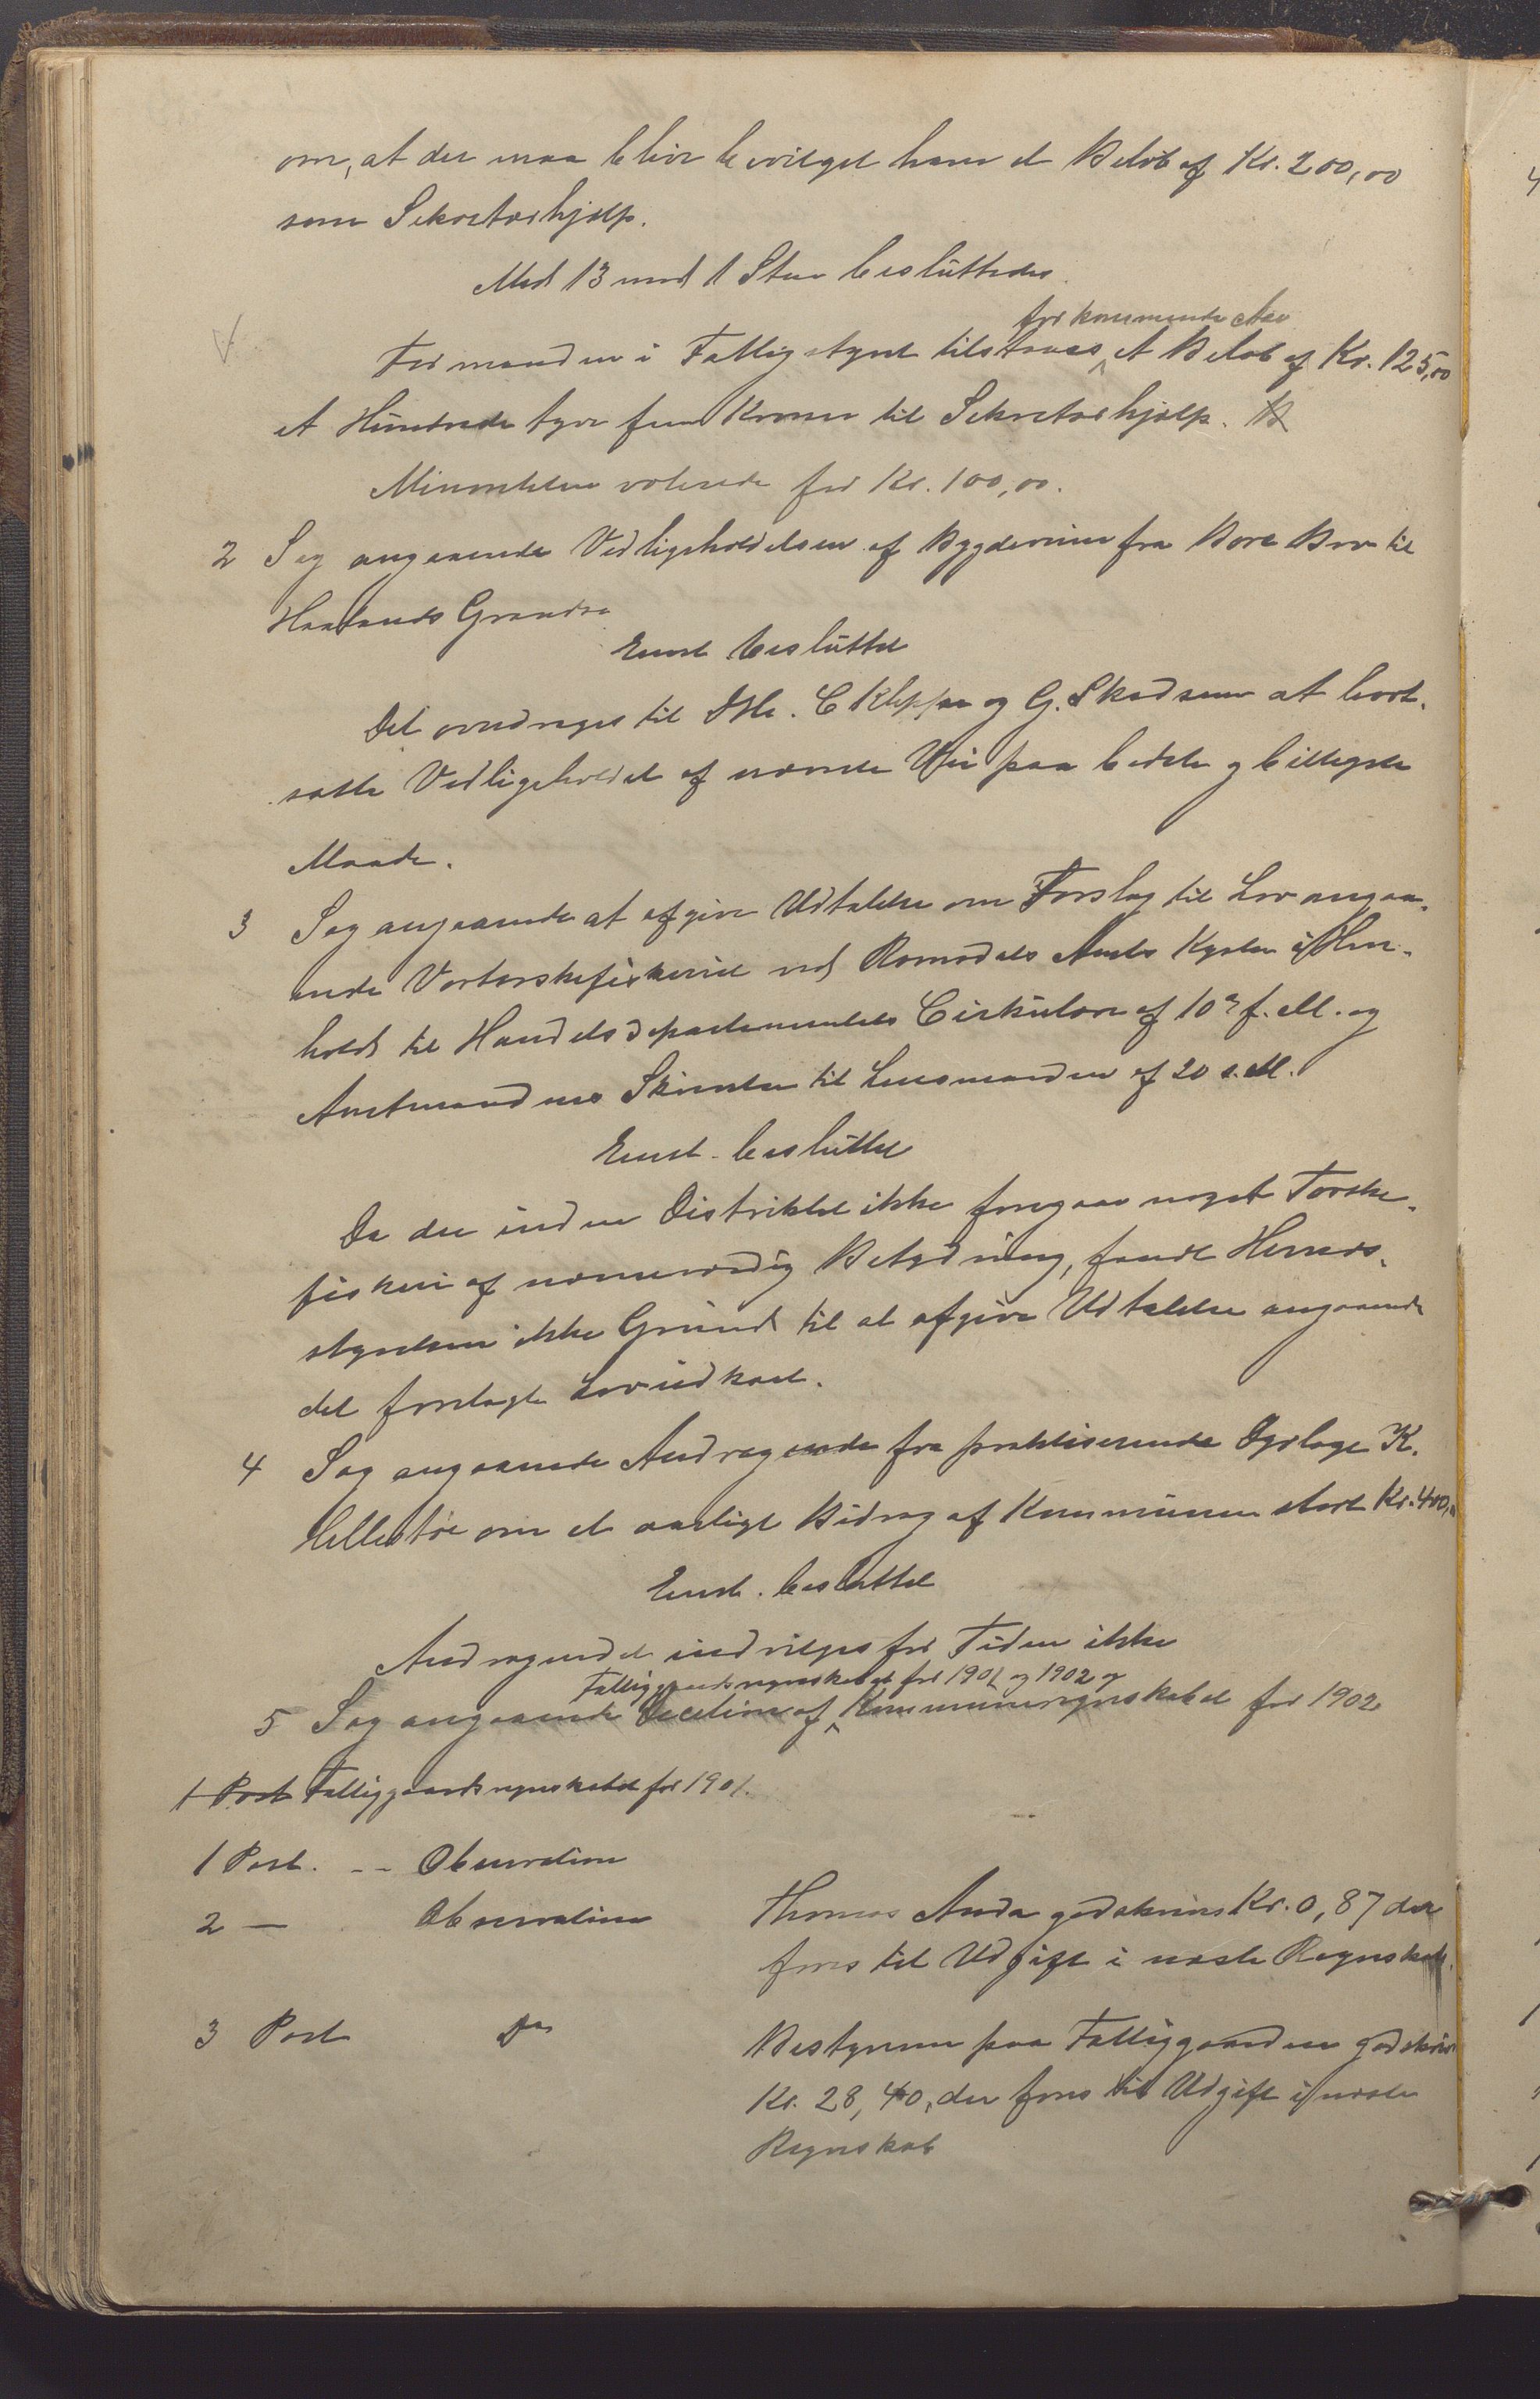 om, at der maa blive bevilget ham et Beløb af Kr. 200,00
som Sekretærhjælp.
Med 13 mod 1 Stem besluttedes.
for kommende Aar
Formanden i Fattigstyret tilstaaes et Beløb af Kr. 125,00
et Hundrede tyve fem Kroner til Sekretærhjælp.
Minoriteten voterede for Kr. 100,00.
2 Sag angaaende Vedligeholdelsen af Bygdeveien fra Bore Bro til
Haalands Grændse
Enst besluttet
Det overdrages til C Kleppe og G. Skadsem at bort-
sætte Vedligeholdet af nævnte Vei paa bedste og billigste
Maade.
3 Sag angaaende at afgive Udtalelse om Forslag til Lov angaa-
ende Vaartorskefiskeriet ved Romsdals Amts Kyster i Hen-
hold til Handelsdepartementets Cirkulære af 10de f. M. og
Amtmandens Skrivelse til Lensmanden af 20 s. M.
Enst. besluttet
Da der inden Distriktet ikke foregaar noget Torske-
fiskeri af nævneværdig Betydning, fandt Herreds-
styrelsen ikke Grund til at afgive Udtalelse angaaende
det forelagte Lovudkast.
4 Sag angaaende Andragende fra praktiserende Dyrlæge K.
Hellestø om et aarligt Bidrag af Kommunen stort Kr. 400,00
Enst. besluttet
Andragendet indvilges for Tiden ikke
Fattiggaardsregnskabet for 1901 og 1902 og
5 Sag angaaende Decition af Kommuneregnskabet for 1902
1 Post Fattiggaardsregnskabet for 1901.
1 Post. -- Observation
2 — Observation Thomas Anda godskrives Kr. 0,87 der
føres til Udgift i næste Regnskab.
3 Post Do Bestyreren paa Fattiggaarden godskrives
Kr. 28,40, der føres til Udgift i næste
Regnskab